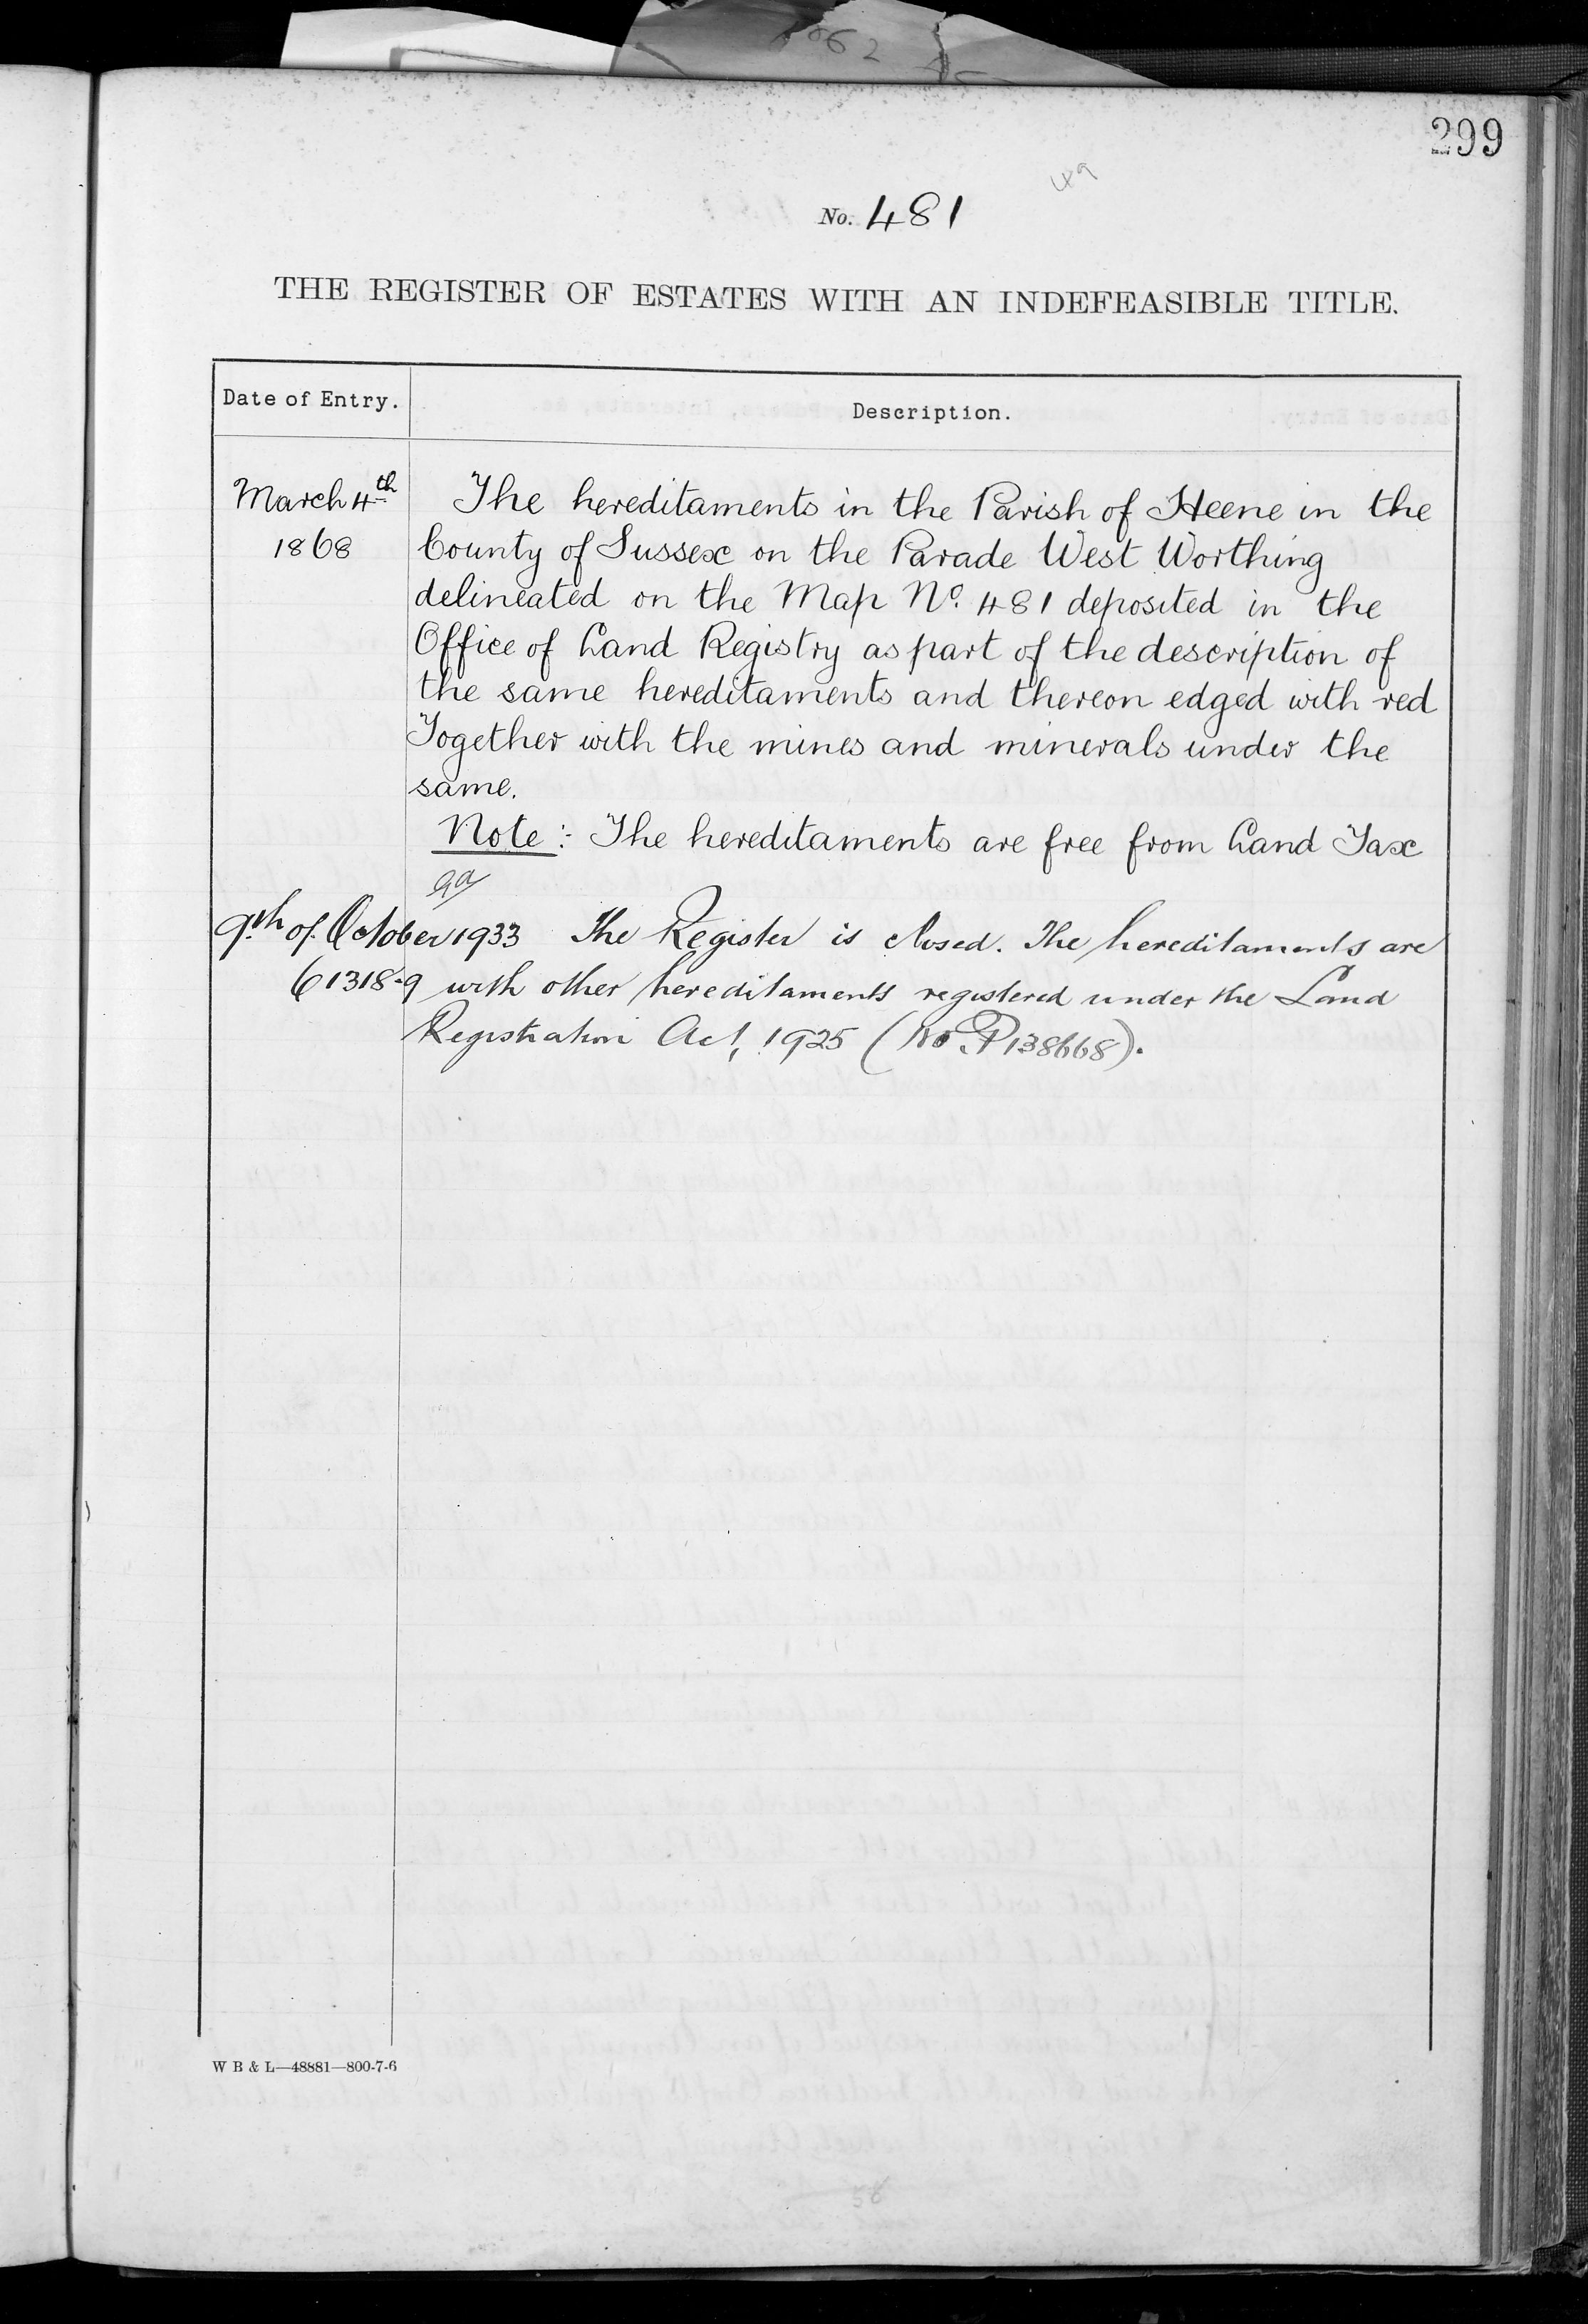 299
49
No. 481
THE REGISTER OF ESTATES WITH AN INDEFEASIBLE TITLE.
Date of Entry. Description.
March 4th The hereditaments in the Parish of Heene in the
1868 County of Sussex on the Parade West Worthing
delineated on the Map No. 481 deposited in the
Office of Land Registry as part of the description of
the same hereditaments and thereon edged with red
Together with the mines and minerals under the
same.
Note:- The hereditaments are free from Land Tax
9th of October 1933 The Register is closed. The hereditaments are
61318-9 with other hereditaments registered under the Land
Registration Act, 1925 (No. P138668).
W B & L—48881—800-7-6